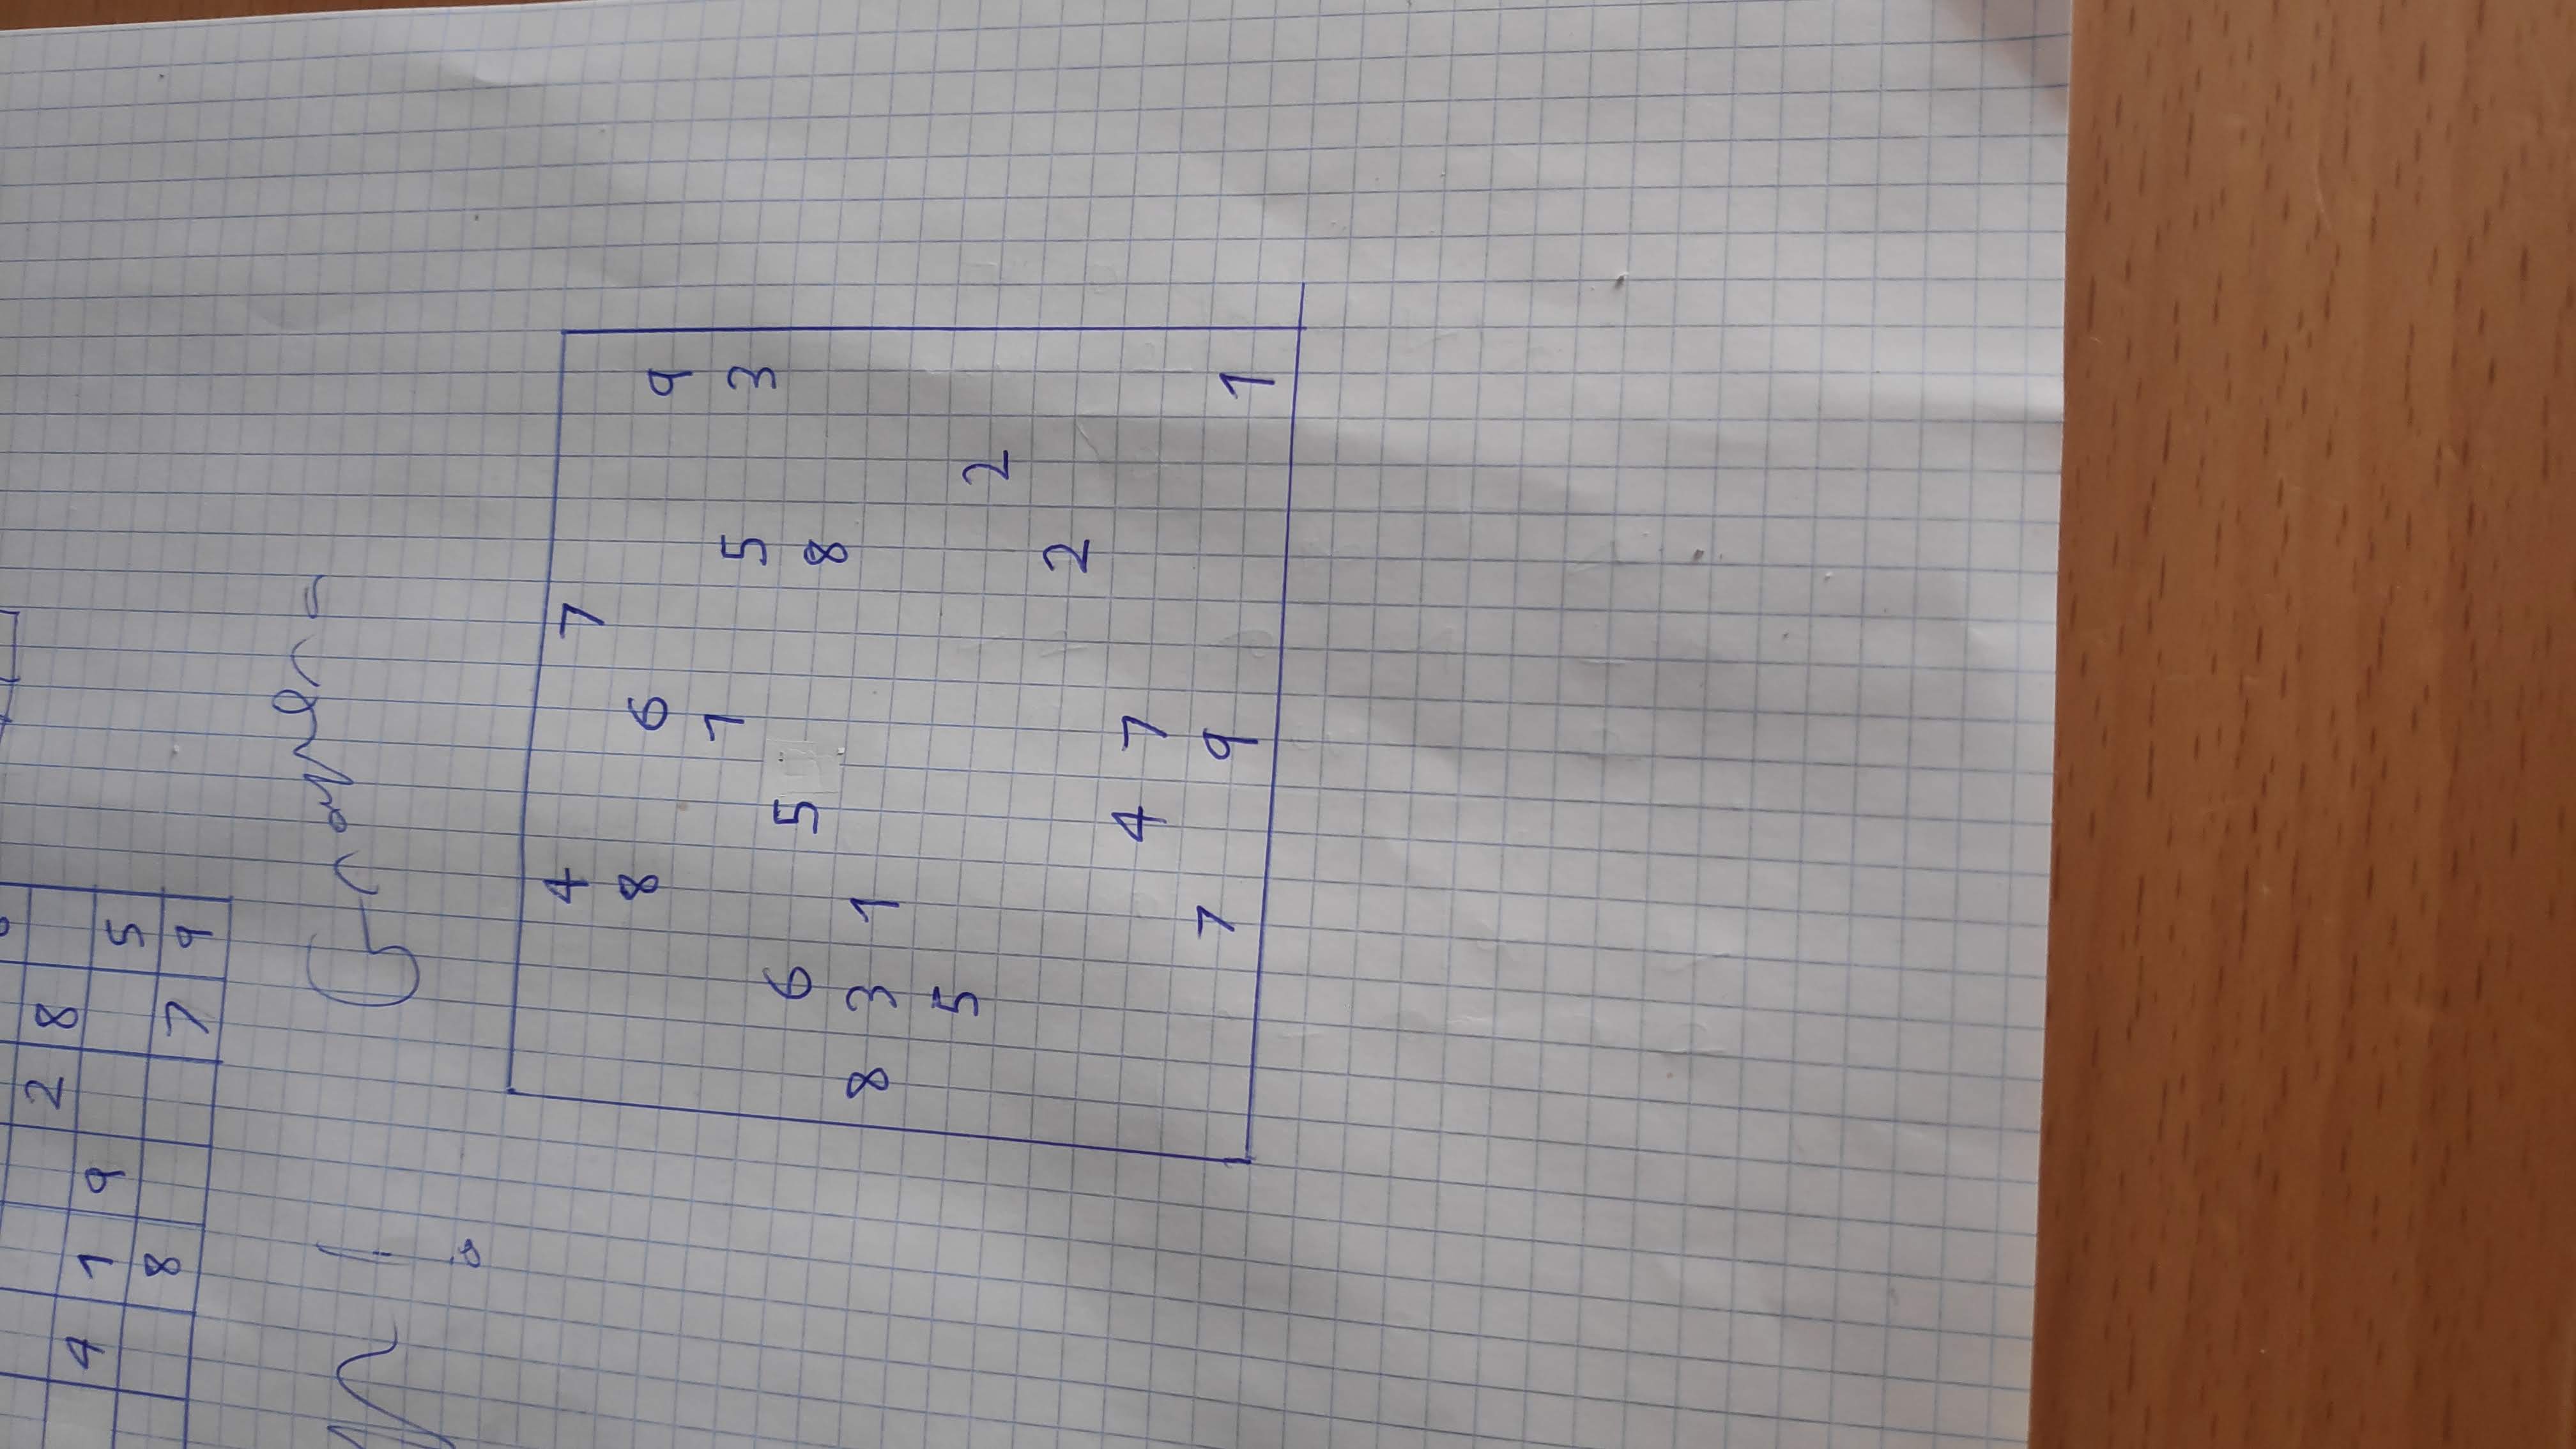 2 8
4 1 9 5
8 7 9
4 7
8 6 9
1 5 3
6 5 8
8 3 1
5 2
2
4 7
7 9 1